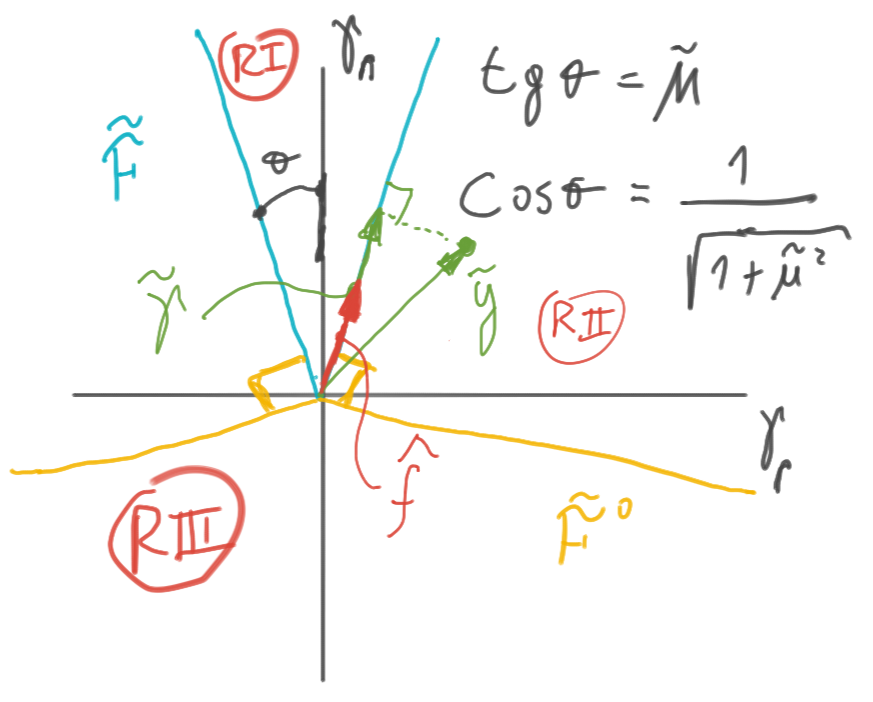 RI
γₙ
tgθ = μ̃
F̃
θ
Cosθ = 1/√(1+μ̃²)
γ̃
ỹ
RII
γᵣ
f̂
F̃°
RIII